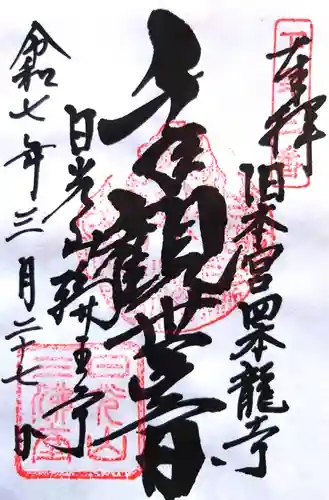 奉拝
旧本宮四本龍寺
千手觀世音
日光山輪王寺
令和七年三月二十七日
日光山
三佛堂